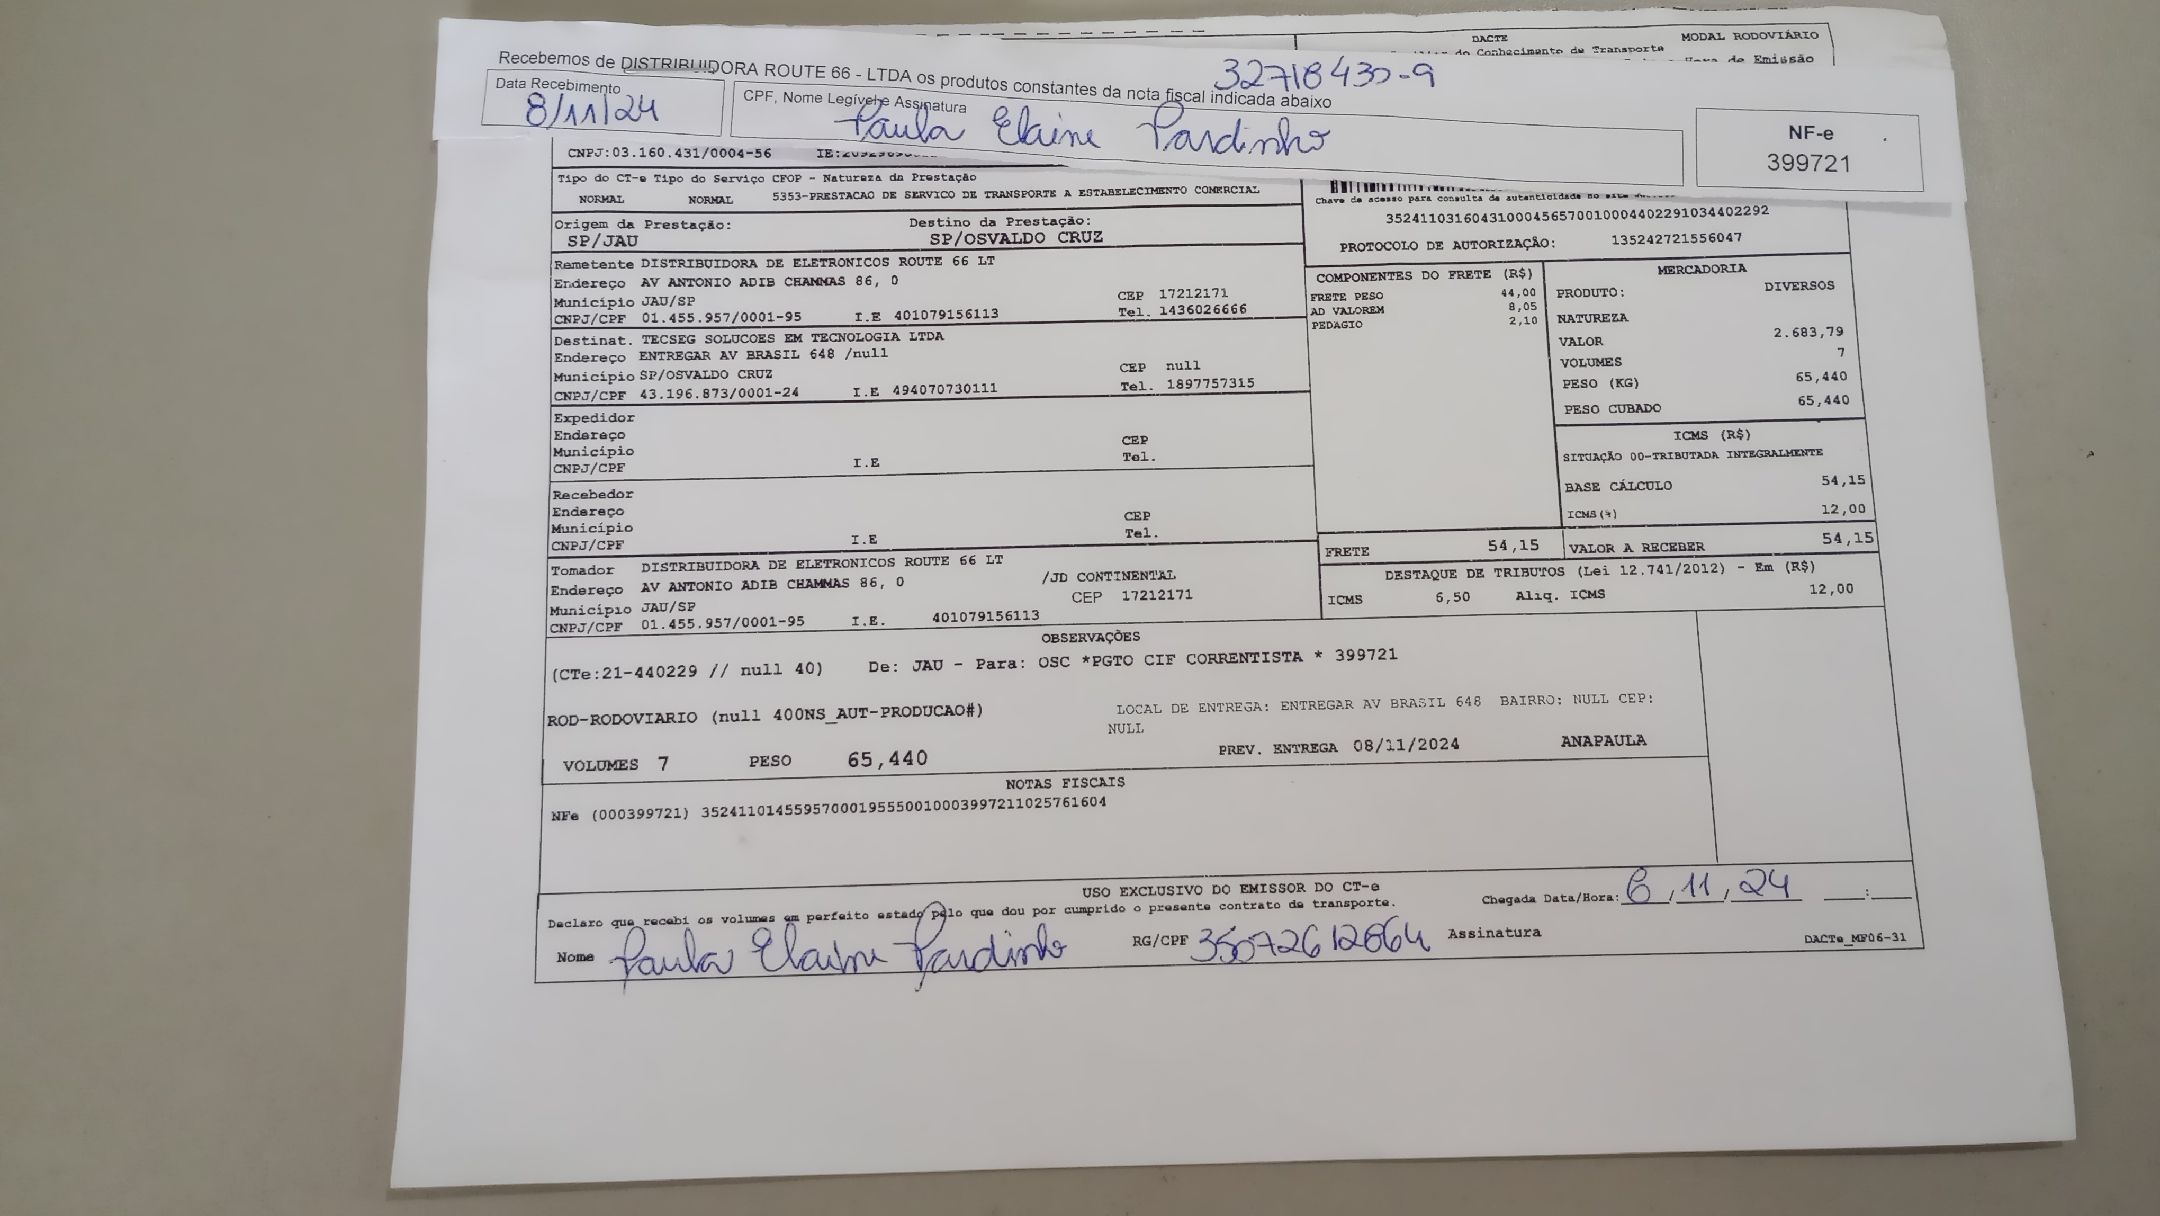 DACTE MODAL RODOVIÁRIO
do Conhecimento de Transporte
de Emissão
Recebemos de DISTRIBUIDORA ROUTE 66 - LTDA os produtos constantes da nota fiscal indicada abaixo
Data Recebimento
8/11/24
CPF, Nome Legível e Assinatura
Paula Elaine Pardinho
NF-e
399721
CNPJ:03.160.431/0004-56 IE:
Tipo do CT-e Tipo do Serviço CFOP - Natureza da Prestação
NORMAL NORMAL 5353-PRESTACAO DE SERVICO DE TRANSPORTE A ESTABELECIMENTO COMERCIAL
Chave de acesso para consulta de autenticidade no site
35241103160431000456570010004402291034402292
PROTOCOLO DE AUTORIZAÇÃO: 135242721556047
Origem da Prestação: Destino da Prestação:
SP/JAU SP/OSVALDO CRUZ
Remetente DISTRIBUIDORA DE ELETRONICOS ROUTE 66 LT
Endereço AV ANTONIO ADIB CHAMMAS 86, 0
Município JAU/SP CEP 17212171
CNPJ/CPF 01.455.957/0001-95 I.E 401079156113 Tel. 1436026666
Destinat. TECSEG SOLUCOES EM TECNOLOGIA LTDA
Endereço ENTREGAR AV BRASIL 648 /null
Município SP/OSVALDO CRUZ CEP null
CNPJ/CPF 43.196.873/0001-24 I.E 494070730111 Tel. 1897757315
Expedidor
Endereço
Município CEP
CNPJ/CPF I.E Tel.
Recebedor
Endereço
Município CEP
CNPJ/CPF I.E Tel.
Tomador DISTRIBUIDORA DE ELETRONICOS ROUTE 66 LT
Endereço AV ANTONIO ADIB CHAMMAS 86, 0 /JD CONTINENTAL
Município JAU/SP CEP 17212171
CNPJ/CPF 01.455.957/0001-95 I.E. 401079156113
COMPONENTES DO FRETE (R$)
FRETE PESO 44,00
AD VALOREM 8,05
PEDAGIO 2,10
MERCADORIA
PRODUTO: DIVERSOS
NATUREZA
VALOR 2.683,79
VOLUMES 7
PESO (KG) 65,440
PESO CUBADO 65,440
ICMS (R$)
SITUAÇÃO 00-TRIBUTADA INTEGRALMENTE
BASE CÁLCULO 54,15
ICMS(%) 12,00
FRETE 54,15 VALOR A RECEBER 54,15
DESTAQUE DE TRIBUTOS (Lei 12.741/2012) - Em (R$)
ICMS 6,50 Aliq. ICMS 12,00
OBSERVAÇÕES
(CTe:21-440229 // null 40) De: JAU - Para: OSC *PGTO CIF CORRENTISTA * 399721
ROD-RODOVIARIO (null 400NS_AUT-PRODUCAO#) LOCAL DE ENTREGA: ENTREGAR AV BRASIL 648 BAIRRO: NULL CEP:
NULL
VOLUMES 7 PESO 65,440 PREV. ENTREGA 08/11/2024 ANAPAULA
NOTAS FISCAIS
NFe (000399721) 35241101455957000195550010003997211025761604
USO EXCLUSIVO DO EMISSOR DO CT-e
Declaro que recebi os volumes em perfeito estado pelo que dou por cumprido o presente contrato de transporte.
Chegada Data/Hora: 6,11,24 :
Nome Paula Elaine Pardinho RG/CPF Assinatura DACTe_MF06-31